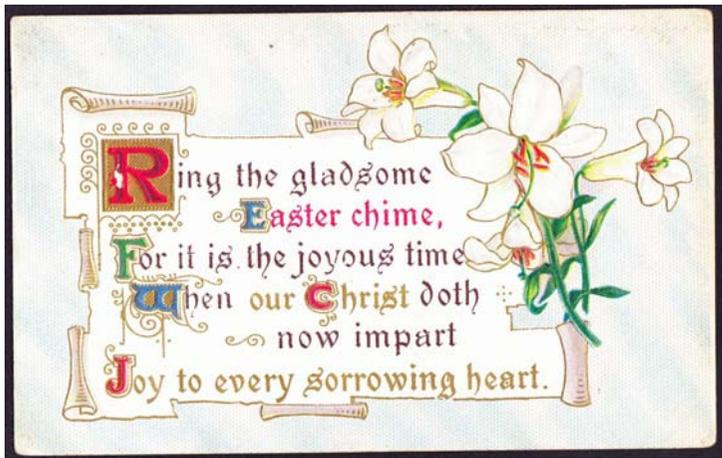 Ring the gladsome
Easter chime,
For it is the joyous time
When our Christ doth
now impart
Joy to every sorrowing heart.